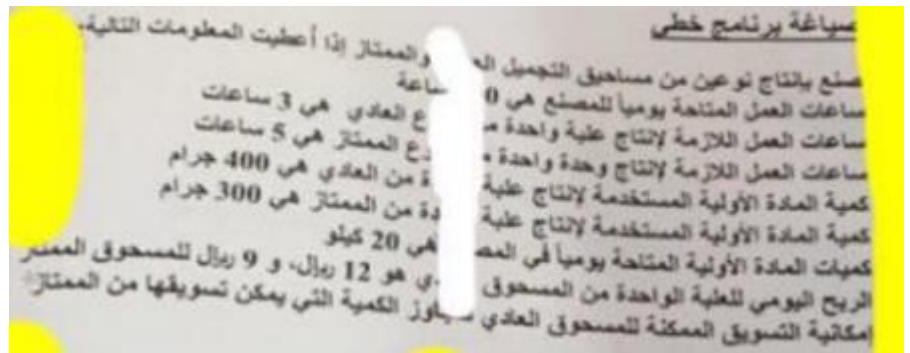 صياغة برنامج خطي
مصنع بإنتاج نوعين من مساحيق التجميل والممتاز إذا أعطيت المعلومات التالية،
ساعات العمل المتاحة يومياً للمصنع هي 0 ساعة
ساعات العمل اللازمة لإنتاج علبة واحدة م ع العادي هي 3 ساعات
ساعات العمل اللازمة لإنتاج وحدة واحدة م وع الممتاز هي 5 ساعات
كمية المادة الأولية المستخدمة لإنتاج علبة ة من العادي هي 400 جرام
كمية المادة الأولية المستخدمة لإنتاج علبة دة من الممتاز هي 300 جرام
كميات المادة الأولية المتاحة يومياً في المص هي 20 كيلو
الربح اليومي للعلبة الواحدة من المسحوق دي هو 12 ريال، و 9 ريال للمسحوق الممتاز
إمكانية التسويق الممكنة للمسحوق العادي اوز الكمية التي يمكن تسويقها من الممتاز